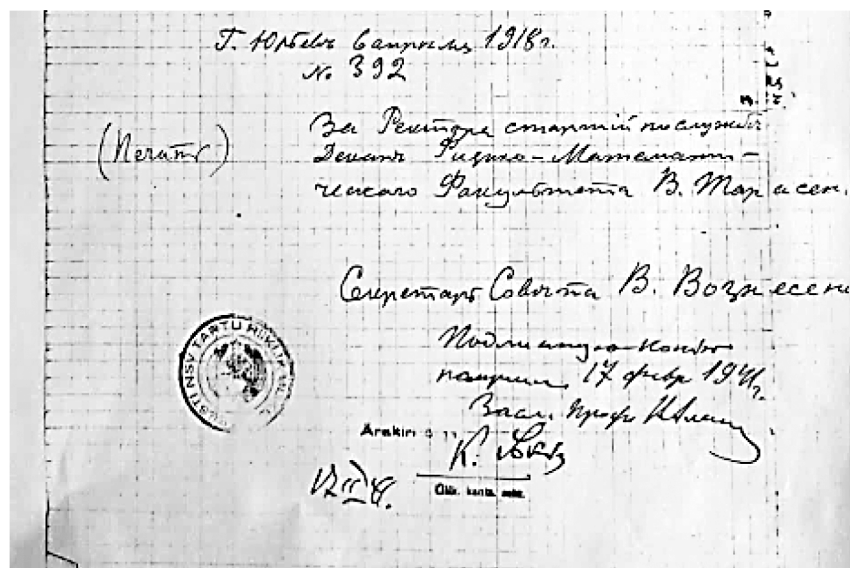 Г. Юрьевъ 6 апрѣля 1918 г.
№ 392
(Печать)
За Ректора старшій по службѣ
Деканъ Физико-Математи-
ческаго Факультета В. Тарасен.
Секретарь Совѣта В. Вознесен
Подлинную копію
получилъ 17 февр 1941 г.
Засл. Проф
EESTI NSV TARTU RIIKLIK
Ärakiri
К.
17 II 41.